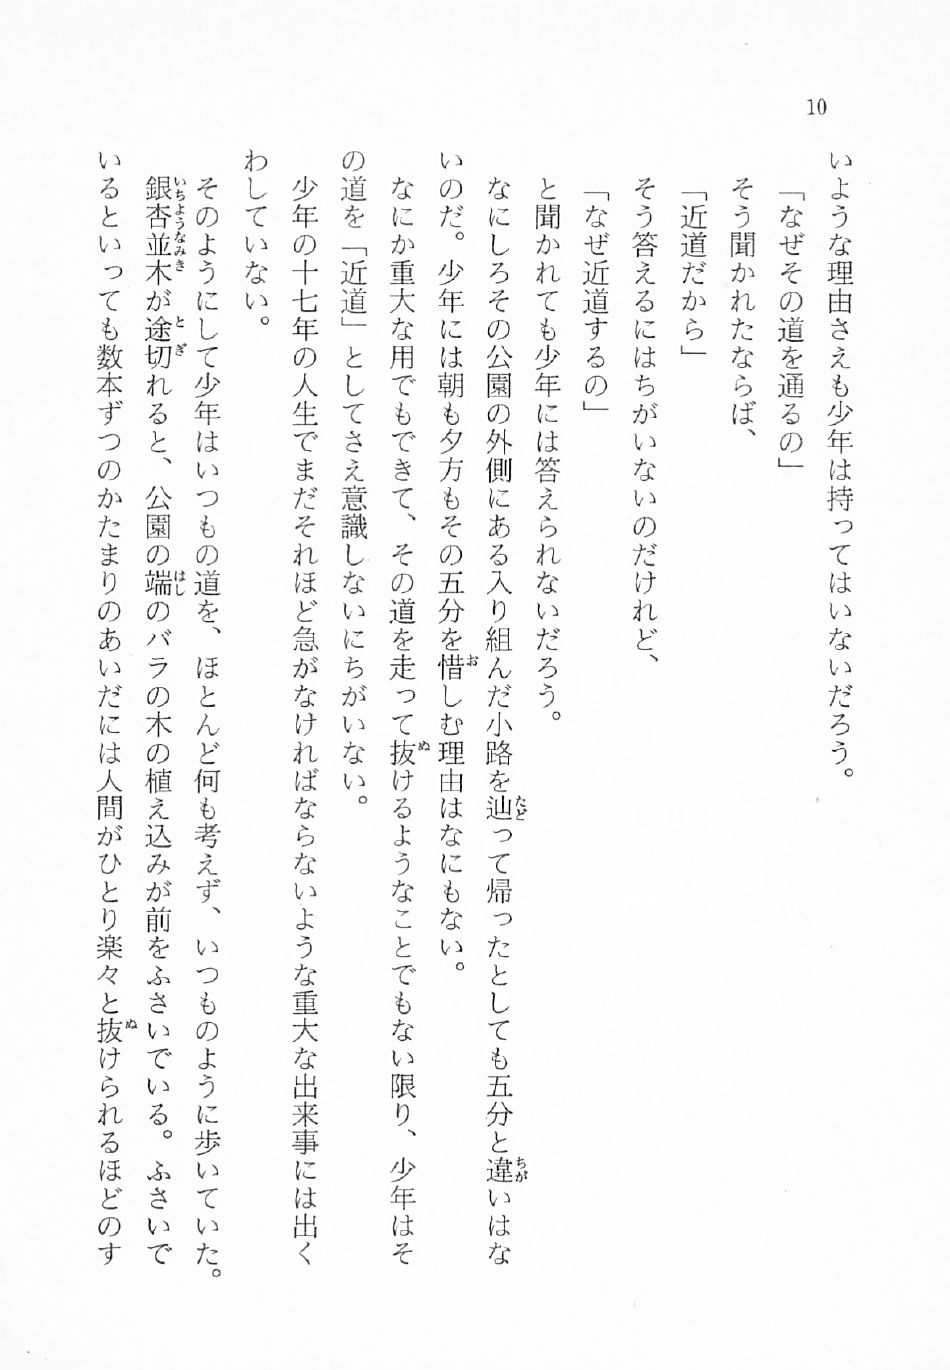 10
いような理由さえも少年は持ってはいないだろう。
「なぜその道を通るの」
そう聞かれたならば、
「近道だから」
そう答えるにはちがいないのだけれど、
「なぜ近道するの」
と聞かれても少年には答えられないだろう。
なにしろその公園の外側にある入り組んだ小路を辿って帰ったとしても五分と違いはな
いのだ。少年には朝も夕方もその五分を惜しむ理由はなにもない。
なにか重大な用でもできて、その道を走って抜けるようなことでもない限り、少年はそ
の道を「近道」としてさえ意識しないにちがいない。
少年の十七年の人生でまだそれほど急がなければならないような重大な出来事には出く
わしていない。
そのようにして少年はいつもの道を、ほとんど何も考えず、いつものように歩いていた。
銀杏並木が途切れると、公園の端のバラの木の植え込みが前をふさいでいる。ふさいで
いるといっても数本ずつのかたまりのあいだには人間がひとり楽々と抜けられるほどのす